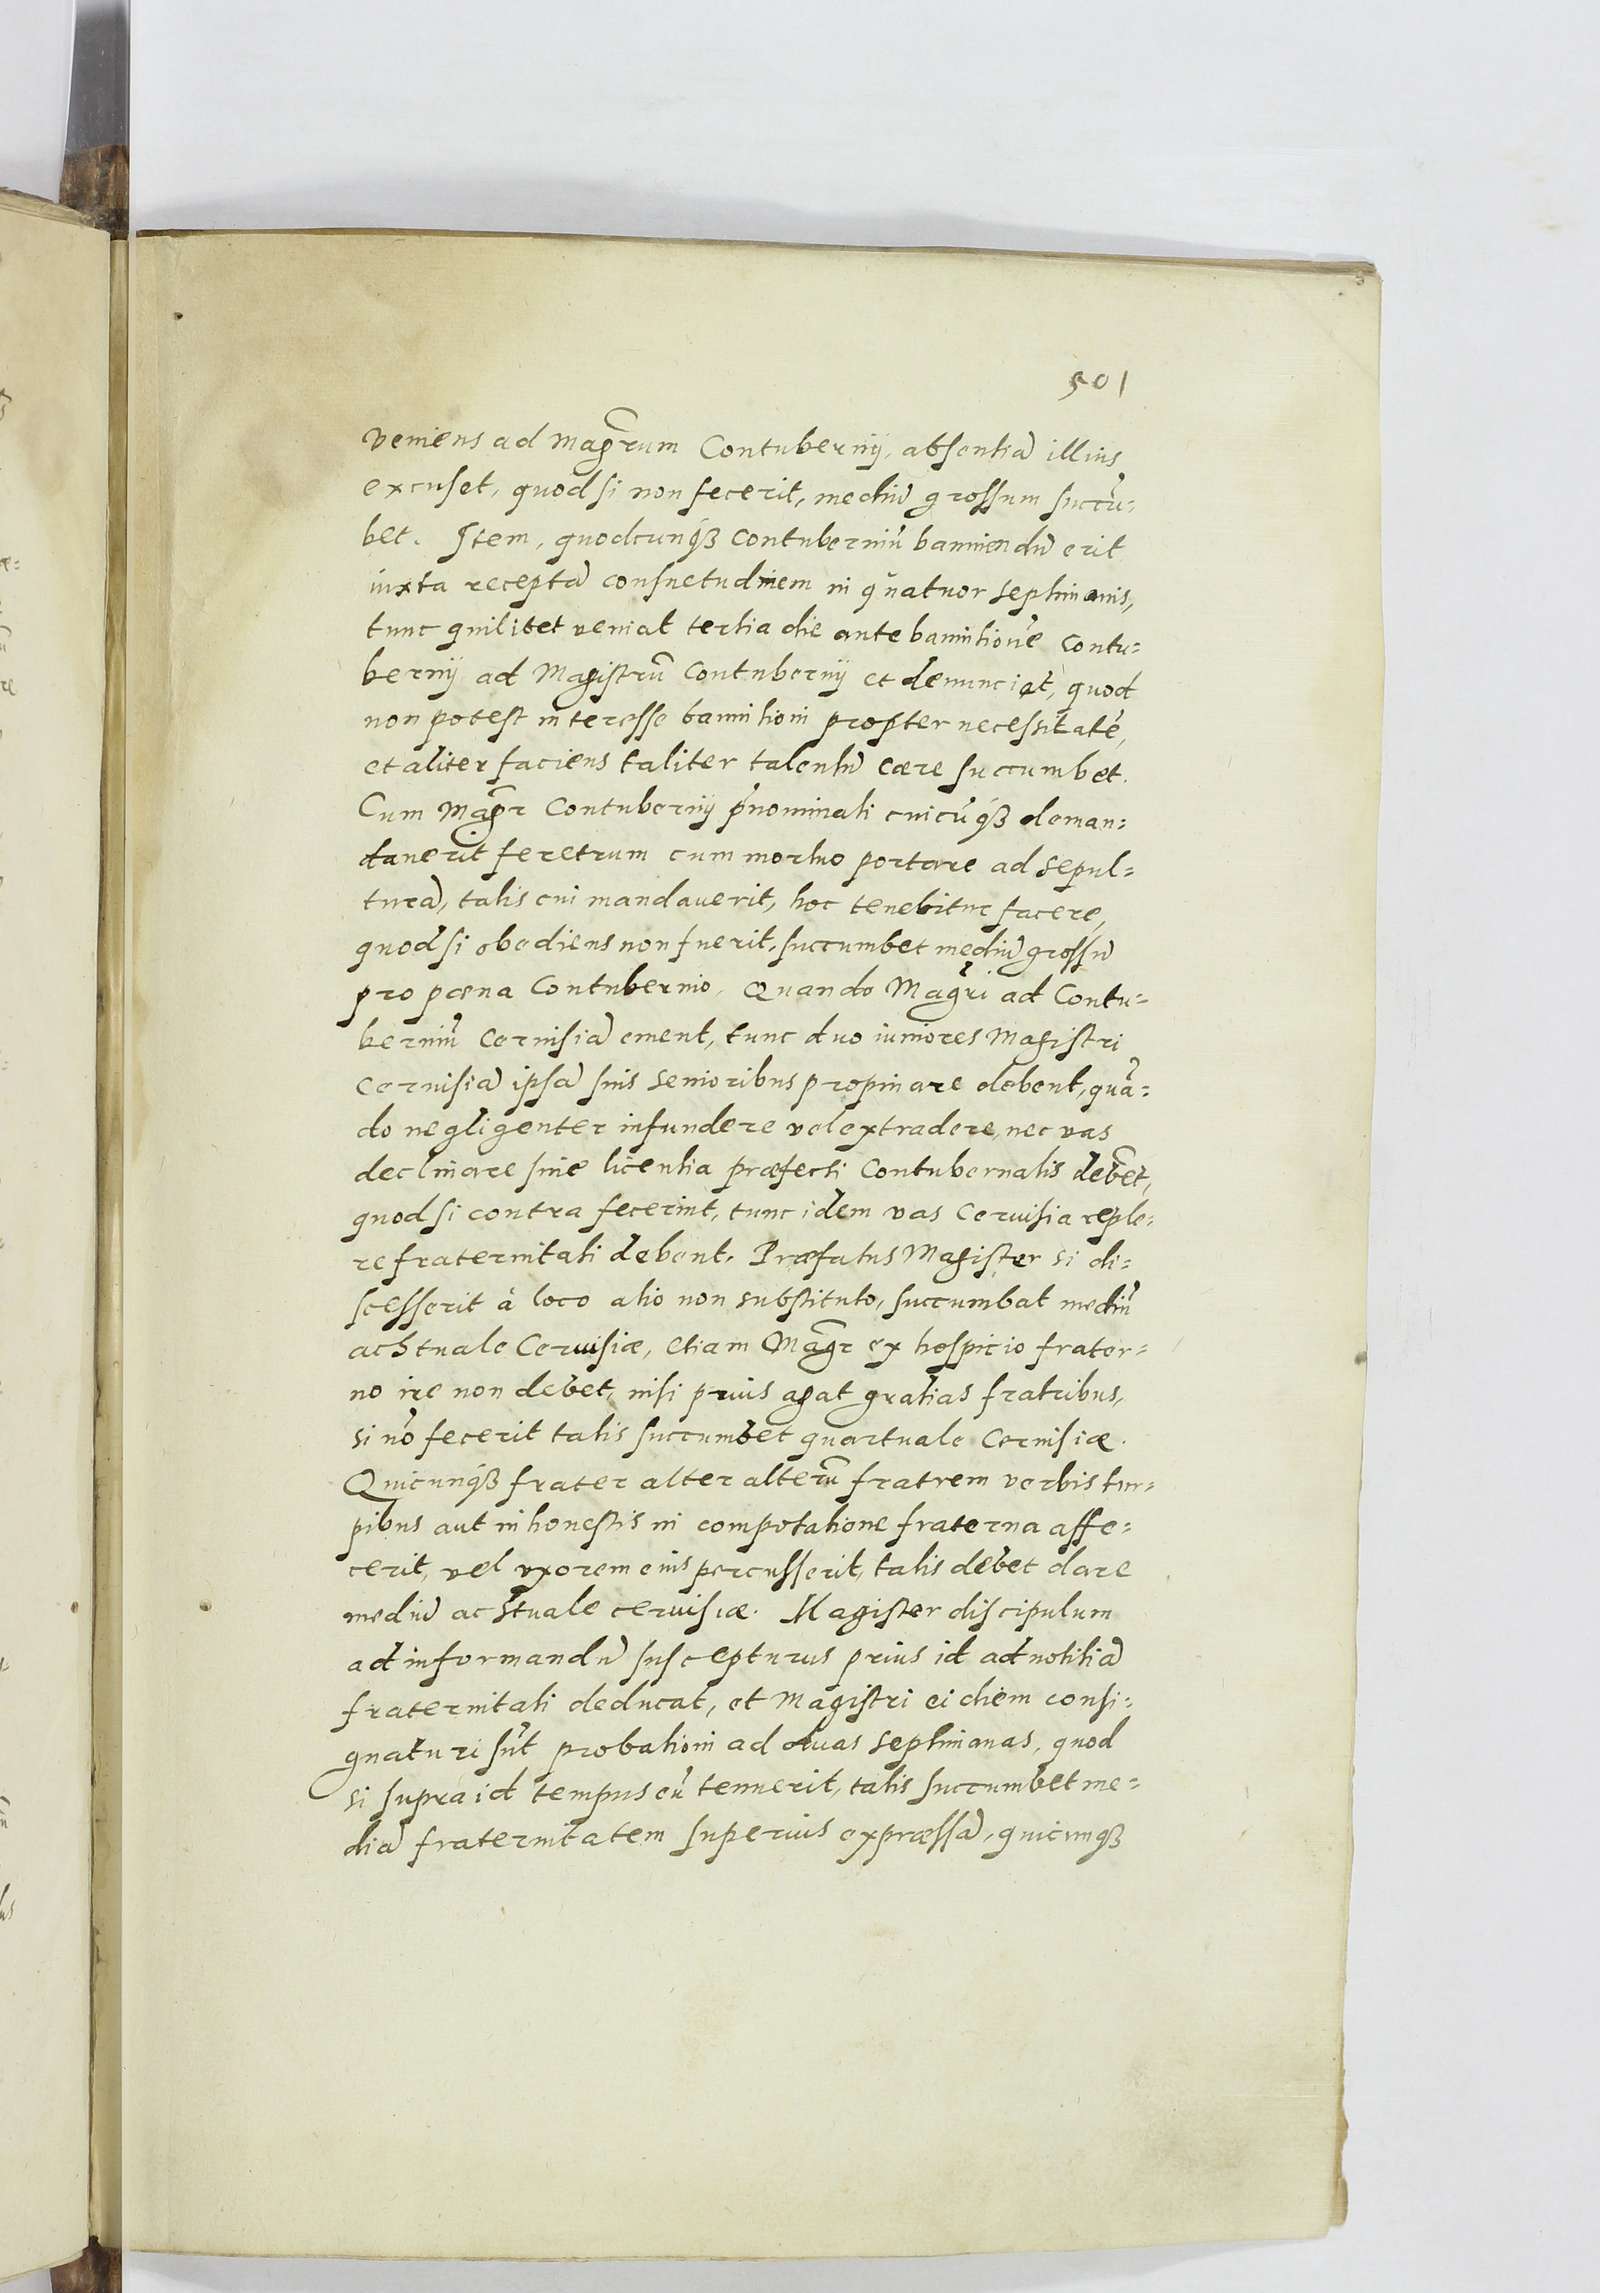 501
veniens ad Magr̃um Contubernij, absentiã illius
excuset, quod si non fecerit, mediũ grossum succũ=
bet. Item, quodcunqȝ Contuberniũ banniendũ erit
iuxta receptã consuetudinem in quatuor septimanis,
tunc quilibet veniat tertia die ante bannitionẽ Contu=
bernij ad Magistrũ Contubernij et denunciet, quod
non potest interesse bannitioni propter necessitatẽ,
et aliter faciens taliter talentũ cære succumbet.
Cum Magr̃ Contubernij p̃nominati cuicũqȝ deman=
dauerit feretrum cum mortuo portare ad sepul=
turã, talis cui mandauerit, hoc tenebitur facere,
quod si obediens non fuerit, succumbet mediũ grossũ
pro pœna Contubernio. Quando Magr̃i ad Contu=
berniũ Ceruisiã ement, tunc duo iuniores Magistri
Ceruisiã ipsã suis senioribus propinare debent, quã=
do negligenter infundere vel extradere, nec vas
declinare sine licentia præfecti Contubernalis deb̃et,
quod si contra fecerint, tunc idem vas Ceruisia reple=
re fraternitati debent. Præfatus Magister si di=
scesserit à loco alio non substituto, succumbat mediũ
achtuale Ceruisiæ, etiam Magr̃ ex hospicio frater=
no ire non debet, nisi prius agat gratias fratribus,
si nõ fecerit talis succumbet quartuale Ceruisiæ.
Quicunqȝ frater alter alterũ fratrem verbis tur=
pibus aut inhonestis in compotatione fraterna affe=
cerit, vel vxorem eius percusserit, talis debet dare
mediũ achtuale ceruisiæ. Magister discipulum
ad informandũ suscepturus prius id ad notitiã
fraternitati deducat, et Magistri ei diem consi=
gnaturi sũt probationi ad duas septimanas, quod
si supra id tempus eũ tenuerit, talis succumbet me=
diã fraternitatem superius expræssã, quicunqȝ